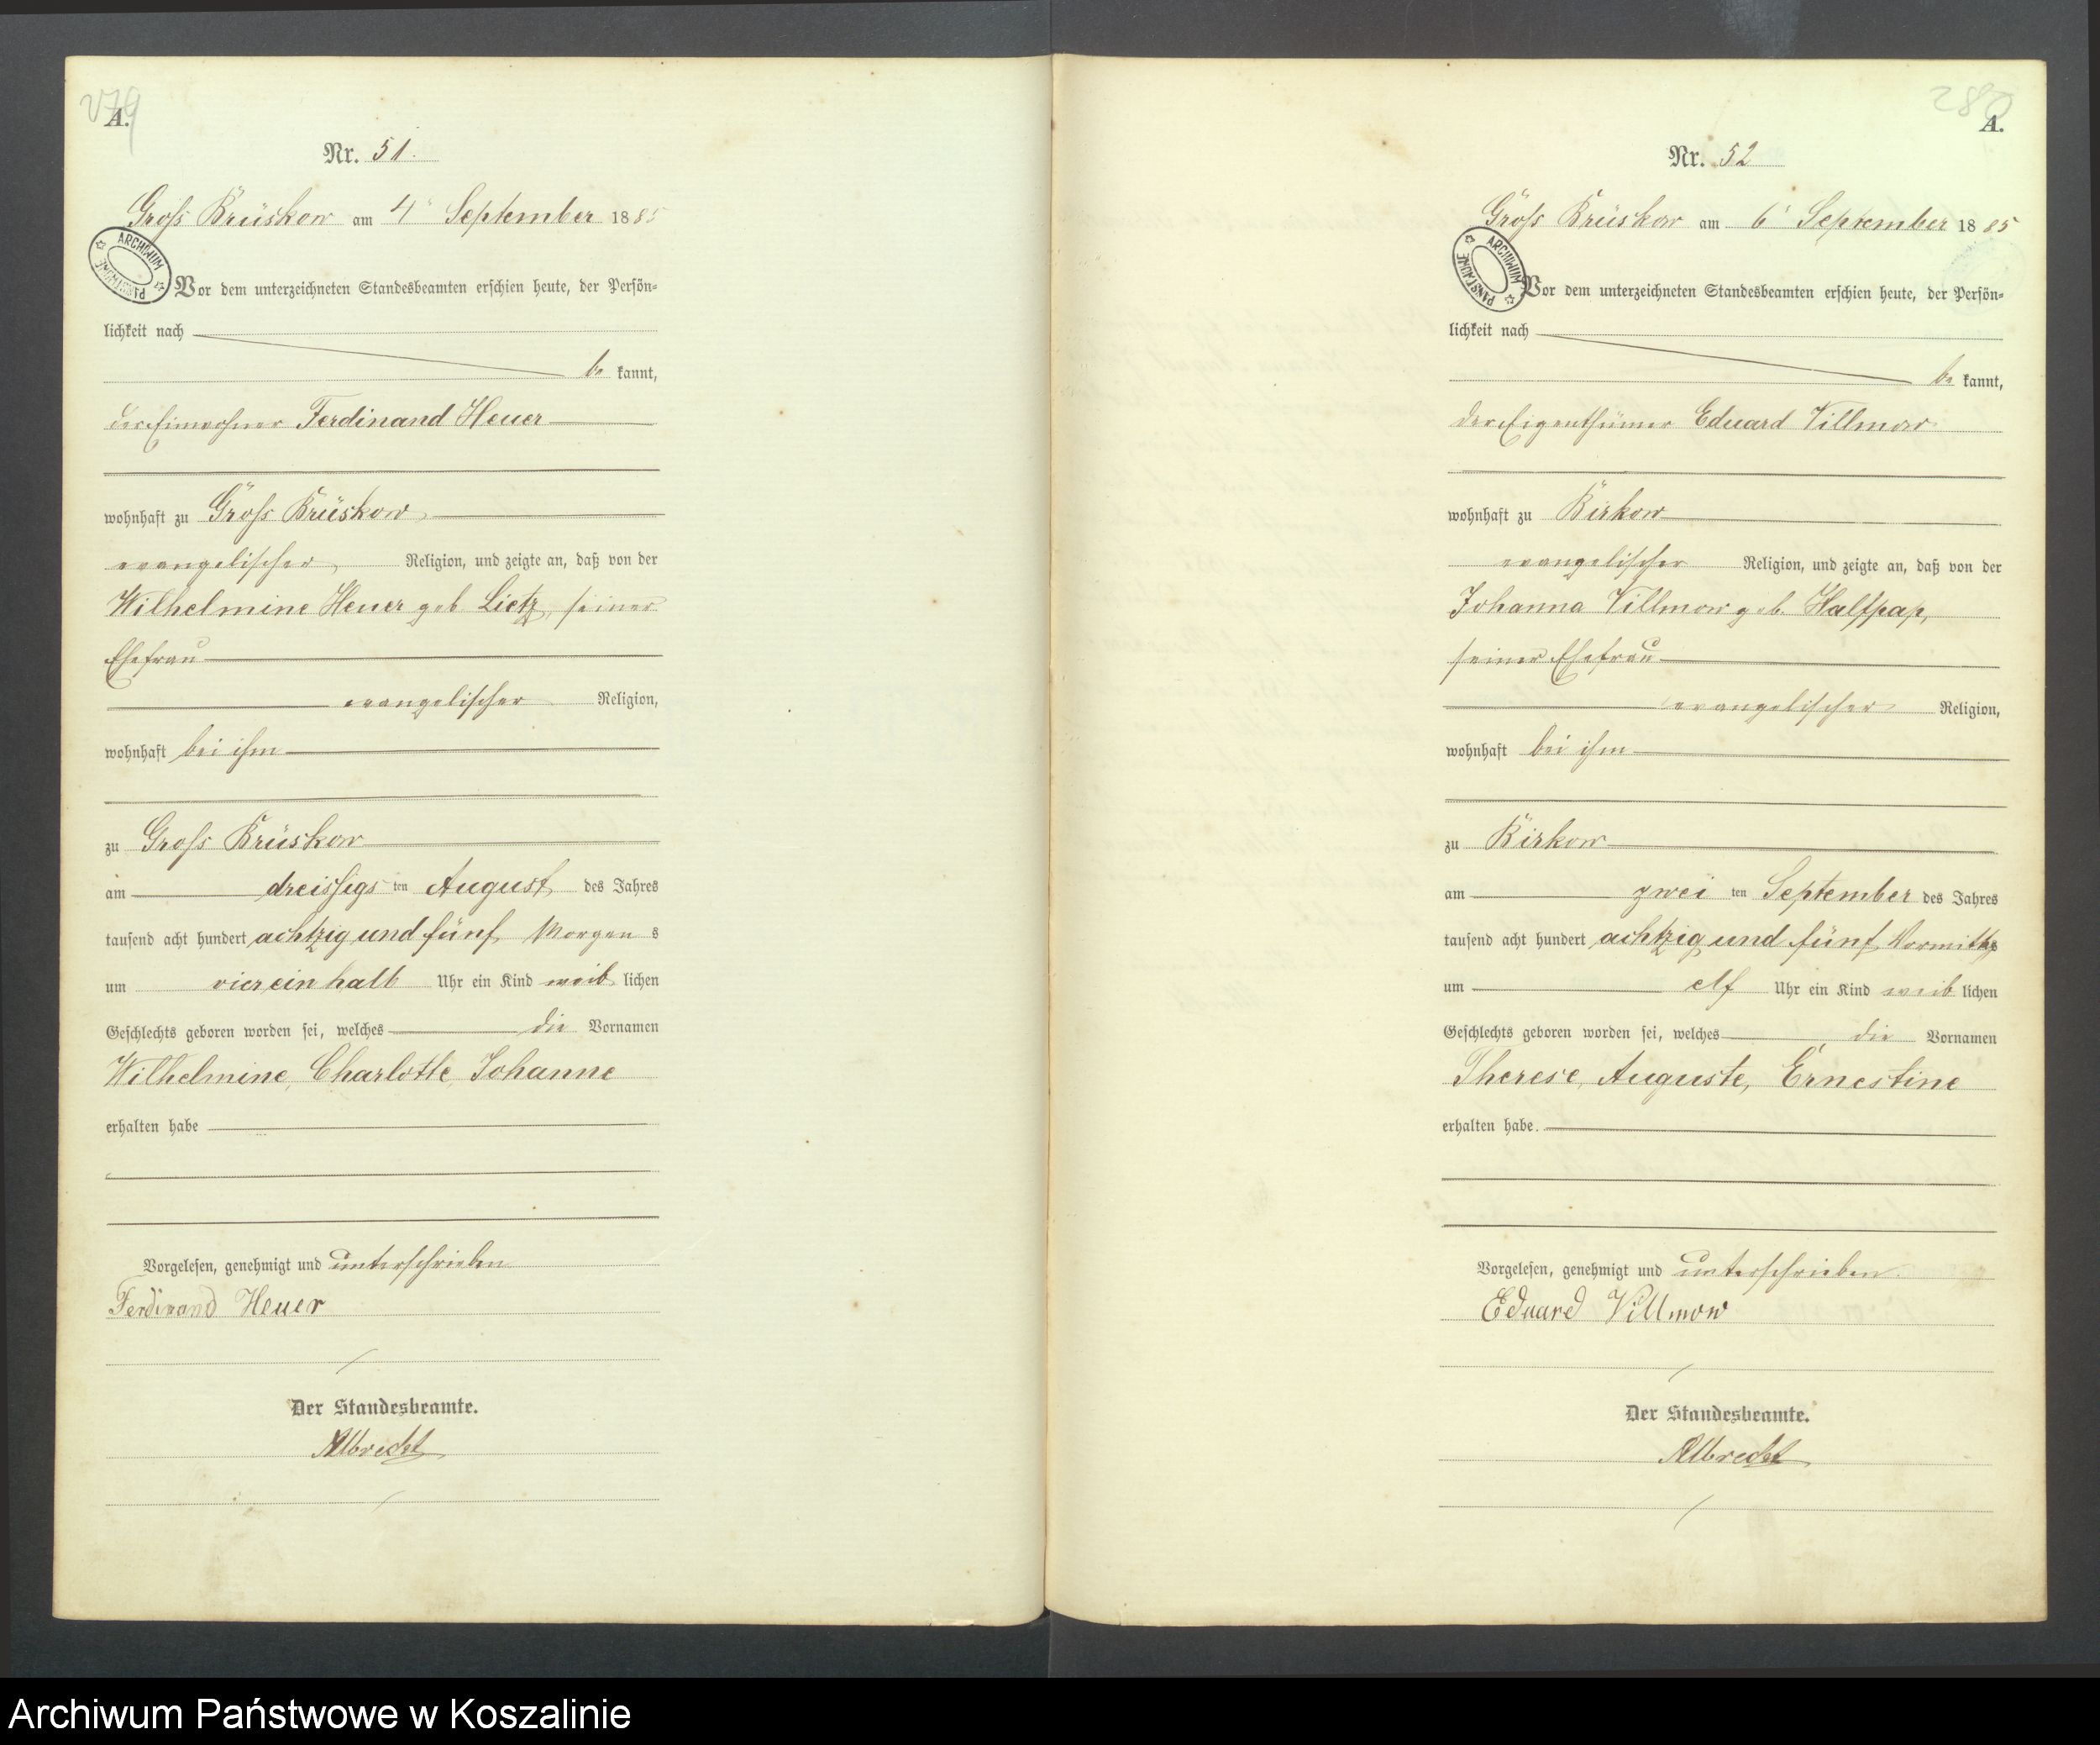 279
A.
Nr. 51.
Groß Brüskow am 4' September 1885
ARCHIWUM PAŃSTWOWE
Vor dem unterzeichneten Standesbeamten erschien heute, der Persön-
lichkeit nach
be kannt,
der Einwohner Ferdinand Heuer
wohnhaft zu Groß Brüskow
evangelischer Religion, und zeigte an, daß von der
Wilhelmine Heuer geb. Lietz, seiner
Ehefrau
evangelischer Religion,
wohnhaft bei ihm
zu Groß Brüskow
am dreissigs ten August des Jahres
tausend acht hundert achtzig und fünf Morgen s
um vier ein halb Uhr ein Kind weib lichen
Geschlechts geboren worden sei, welches die Vornamen
Wilhelmine, Charlotte Johanne
erhalten habe
Vorgelesen, genehmigt und unterschrieben
Ferdinand Heuer
Der Standesbeamte.
Albrecht
280
A.
Nr. 52
Groß Brüskow am 6' September 1885
ARCHIWUM PAŃSTWOWE
Vor dem unterzeichneten Standesbeamten erschien heute, der Persön-
lichkeit nach
be kannt,
der Eigenthümer Eduard Villmow
wohnhaft zu Birkow
evangelischer Religion, und zeigte an, daß von der
Johanna Villmow geb. Halfpap,
seiner Ehefrau
evangelischer Religion,
wohnhaft bei ihm
zu Birkow
am zwei ten September des Jahres
tausend acht hundert achtzig und fünf Vormittgs
um elf Uhr ein Kind weib lichen
Geschlechts geboren worden sei, welches die Vornamen
Therese, Auguste, Ernestine
erhalten habe.
Vorgelesen, genehmigt und unterschrieben.
Eduard Villmow
Der Standesbeamte.
Albrecht
Archiwum Państwowe w Koszalinie